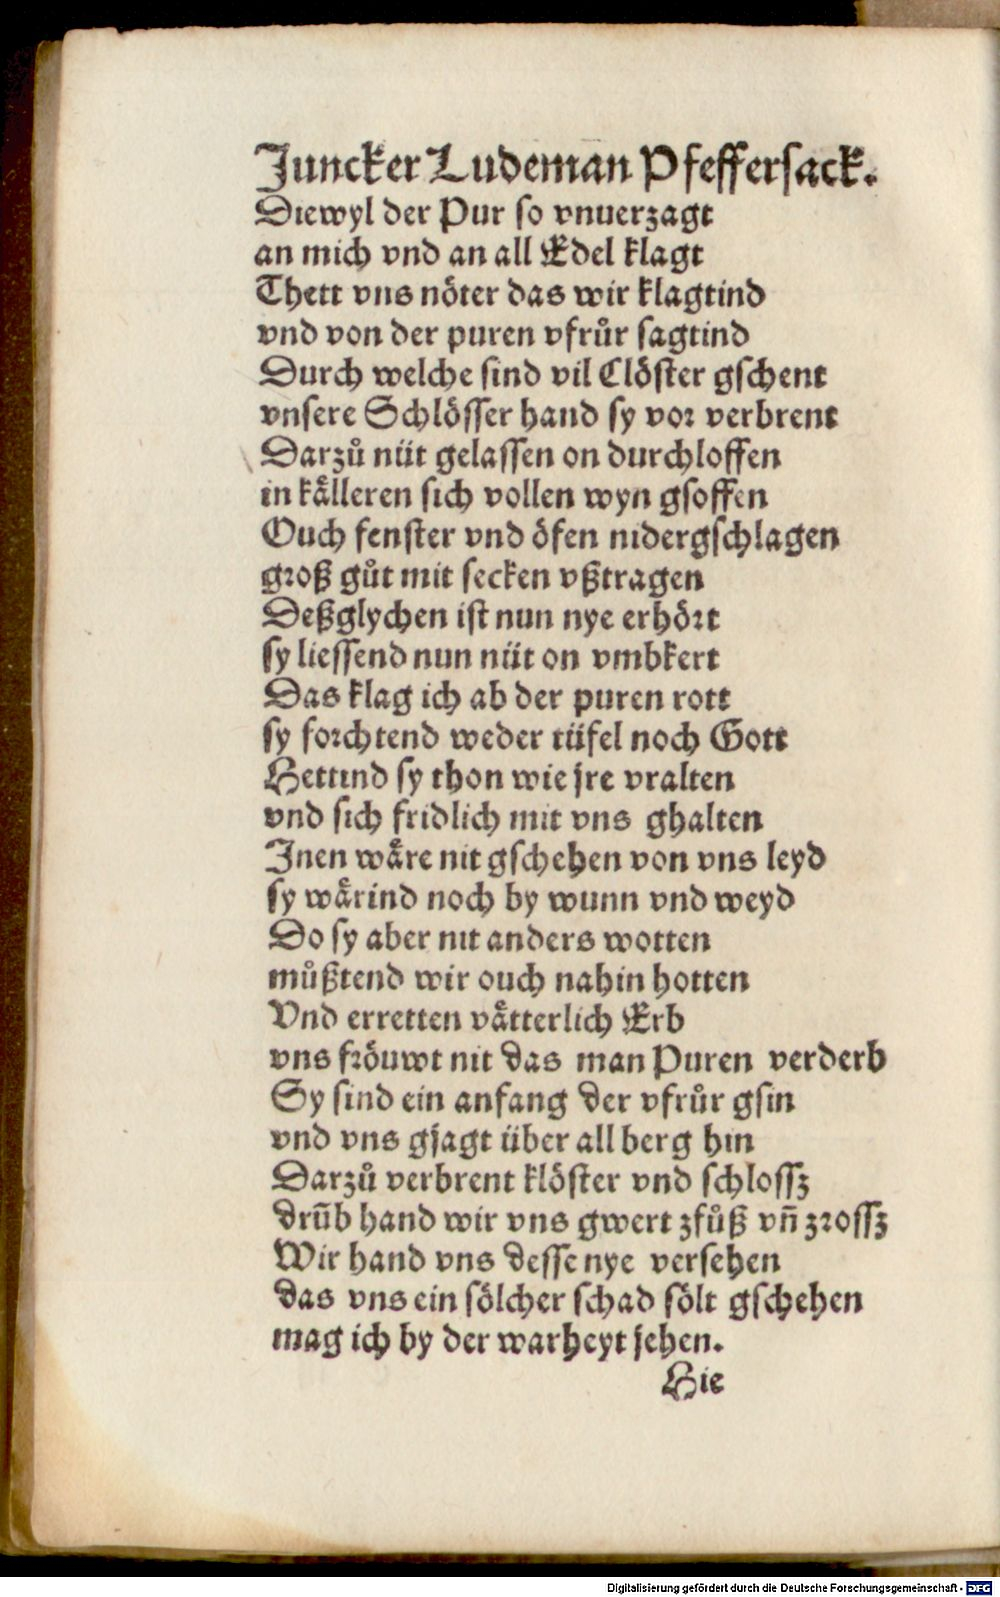 Juncker Ludeman Pfeffersack.
Diewyl der Pur so vnuerzagt
an mich vnd an all Edel klagt
Thett vns nöter das wir klagtind
vnd von der puren vfrůr sagtind
Durch welche sind vil Clöster gschent
vnsere Schlösser hand sy vor verbrent
Darzů nüt gelassen on durchloffen
in källeren sich vollen wyn gsoffen
Ouch fenster vnd öfen nidergschlagen
groß gůt mit secken vßtragen
Deßglychen ist nun nye erhört
sy liessend nun nüt on vmbkert
Das klag ich ab der puren rott
sy forchtend weder tüfel noch Gott
Hettind sy thon wie jre vralten
vnd sich fridlich mit vns ghalten
Jnen wäre nit gschehen von vns leyd
sy wärind noch by wunn vnd weyd
Do sy aber nit anders wotten
můßtend wir ouch nahin hotten
Vnd erretten vätterlich Erb
vns fröuwt nit das man Puren verderb
Sy sind ein anfang der vfrůr gsin
vnd vns gjagt über all berg hin
Darzů verbrent klöster vnd schlossz
drūb hand wir vns gwert zfůß vn̄ zrossz
Wir hand vns desse nye versehen
das vns ein sölcher schad sölt gschehen
mag ich by der warheyt jehen.
Hie
Digitalisierung gefördert durch die Deutsche Forschungsgemeinschaft - DFG